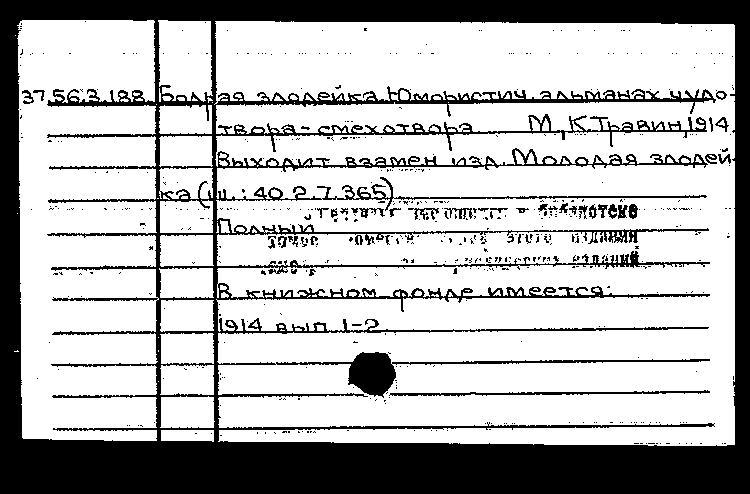 37.56.3.188. Бодрая злодейка. Юмористич. альманах чудо-
твора-смехотвора М., К. Травин, 1914.
Выходит взамен изд. Молодая злодей-
ка (ш.: 40.2.7.365)
в библиотеке
Полный
этого издания
изданий
В книжном фонде имеется:
1914 вып. 1-2.